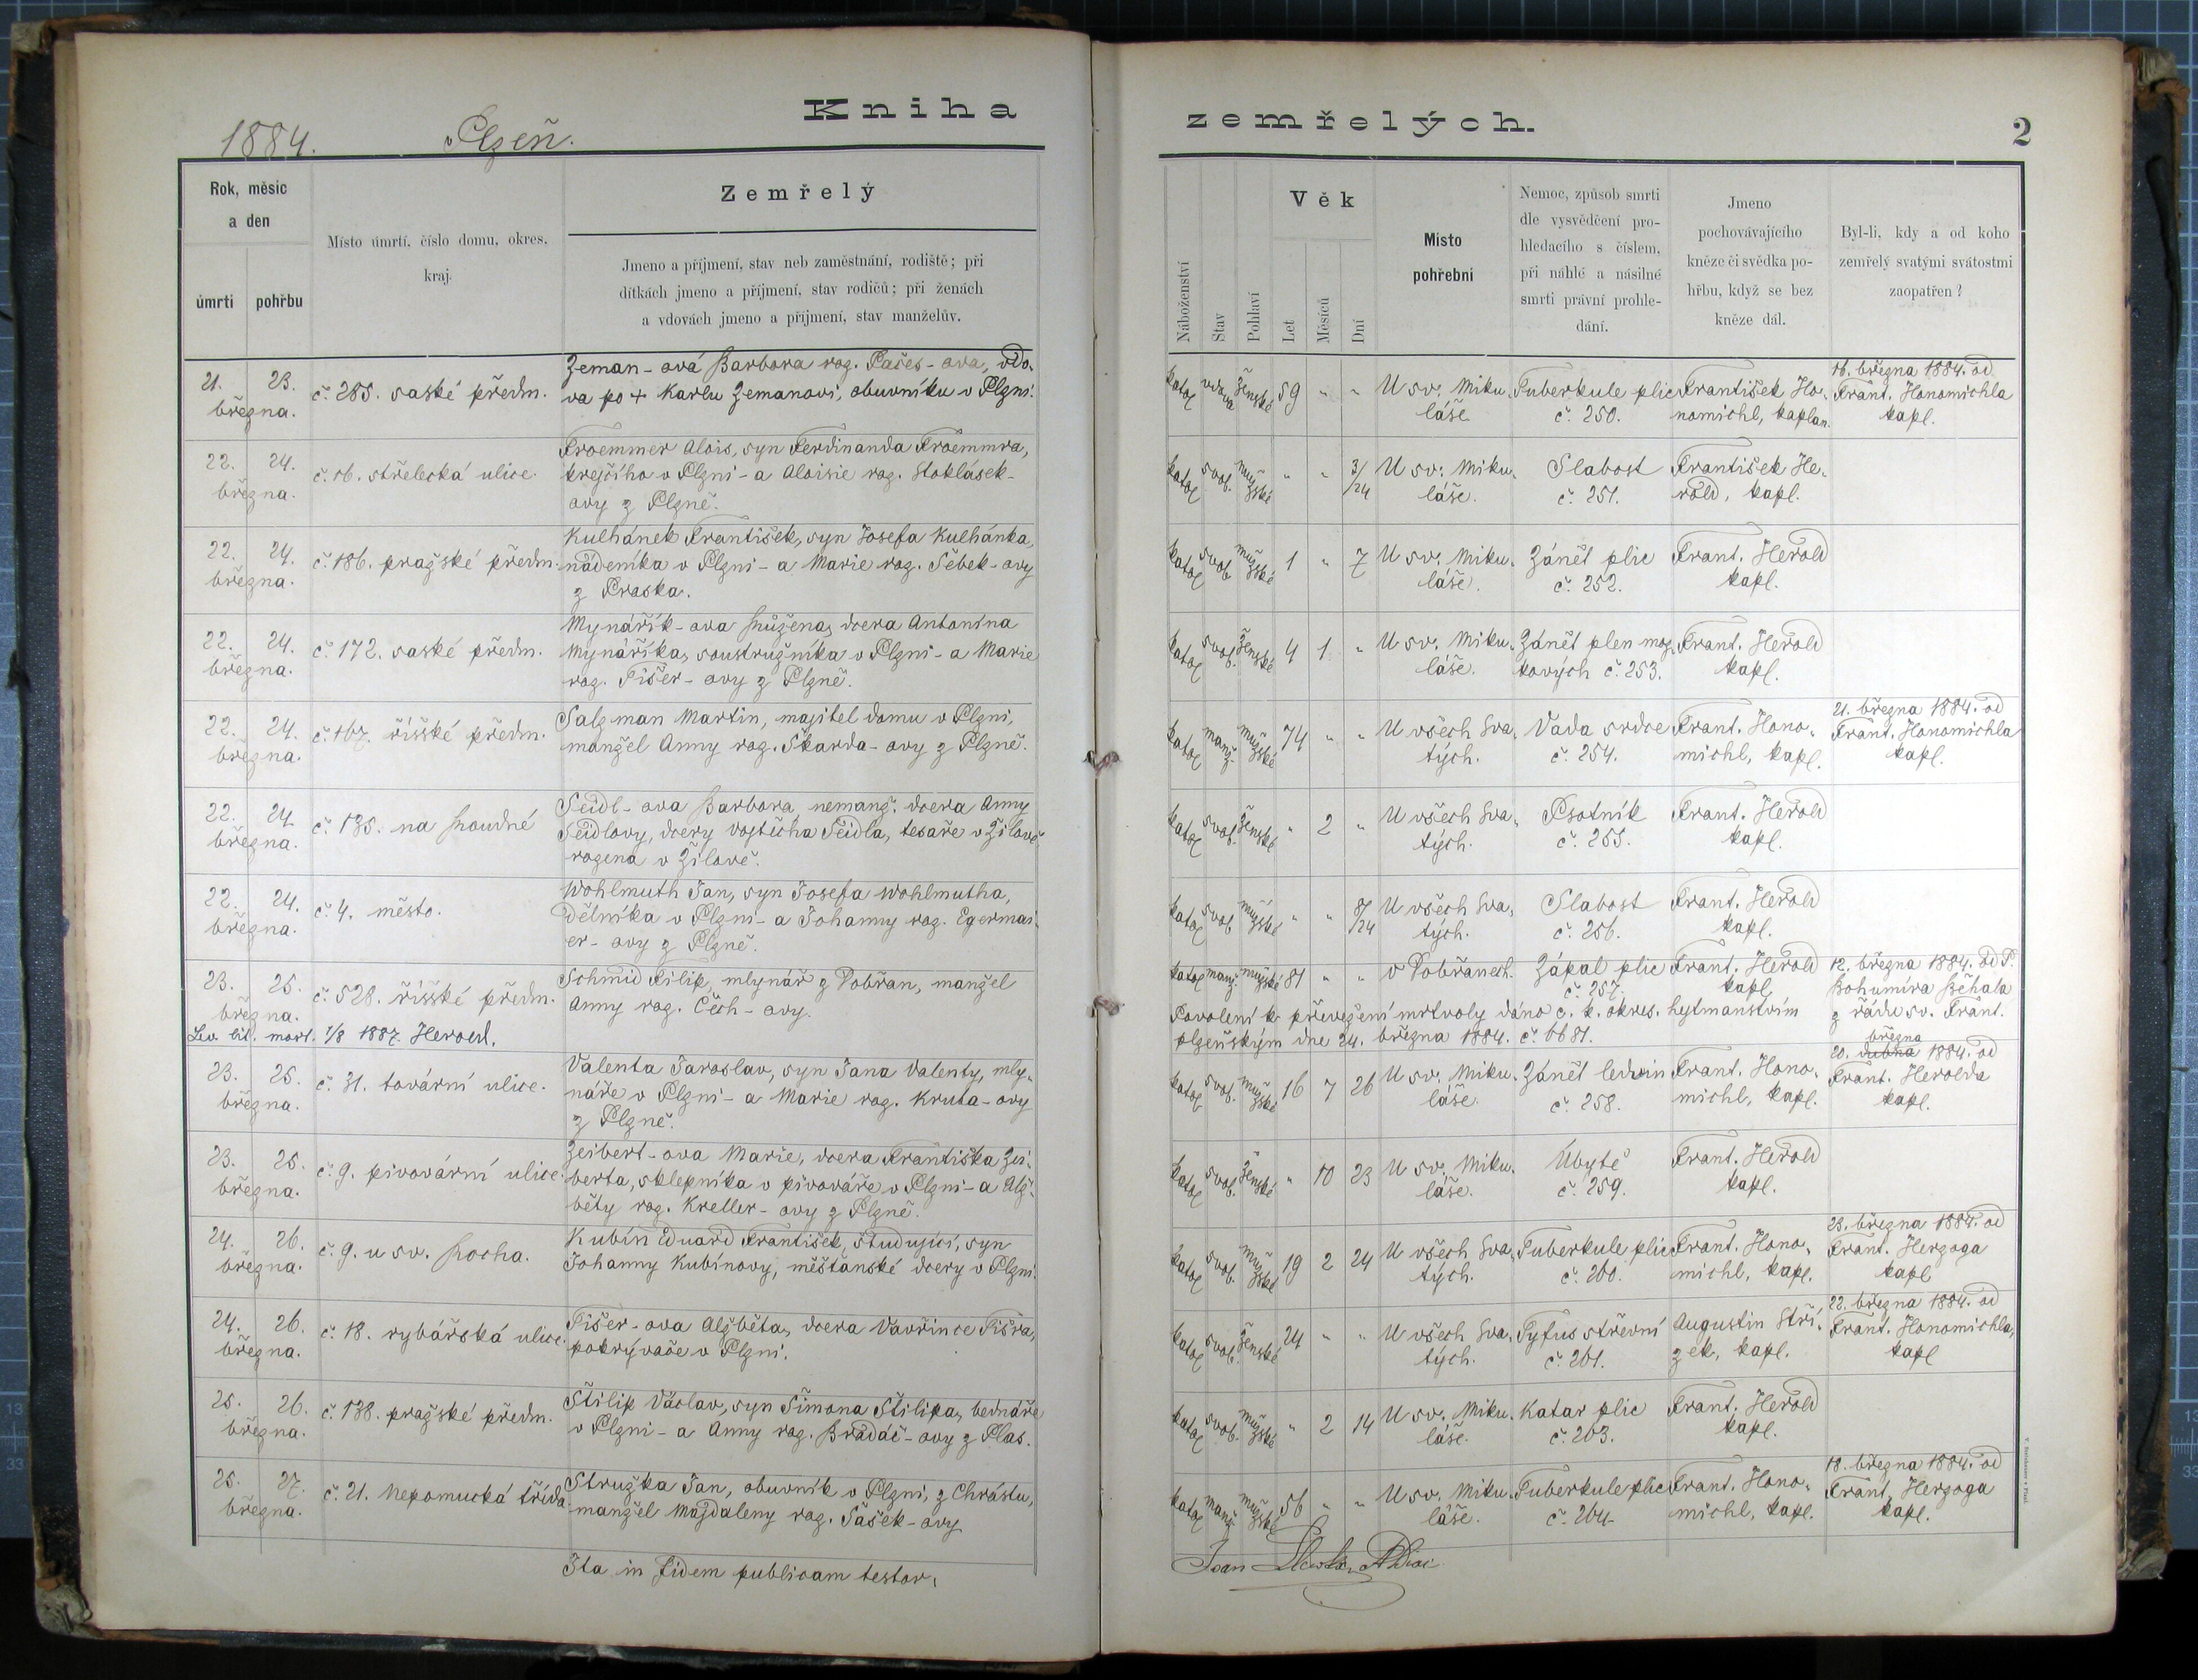 Kniha
1884. Plzeň.
Rok, měsíc
a den
úmrtí pohřbu
Místo úmrtí, číslo domu, okres,
kraj.
Zemřelý
Jmeno a příjmení, stav neb zaměstnání, rodiště; při
dítkách jmeno a příjmení, stav rodičů; při ženách
a vdovách jmeno a příjmení, stav manželův.
21. 23.
března.
č. 285. saské předm.
Zeman-ová Barbora roz. Pašes-ova, vdo-
va po + Karlu Zemanovi, obuvníku v Plzni.
22. 24.
března.
č. 16. střelecká ulice.
Froemmer Alois, syn Ferdinanda Froemmra,
krejčího v Plzni - a Aloisie roz. Stoklásek-
ovy z Plzně.
22. 24.
března.
č. 186. pražské předm.
Kulhánek František, syn Josefa Kulhánka,
nádeníka v Plzni - a Marie roz. Šebek-ovy
z Praska.
22. 24.
března.
č. 172. saské předm.
Mynářík-ova Růžena, dcera Antonína
Mynáříka, soustružníka v Plzni - a Marie
roz. Tišer-ovy z Plzně.
22. 24.
března.
č. 167. říšské předm.
Salzman Martin, majitel domu v Plzni,
manžel Anny roz. Škarda-ovy z Plzně.
22. 24.
března.
č. 135. na Roudné
Seidl-ova Barbora, nemanž. dcera Anny
Seidlovy, dcery Vojtěcha Seidla, tesaře v Žilově
rozena v Žilově.
22. 24.
března.
č. 4. město.
Wohlmuth Jan, syn Josefa Wohlmutha,
dělníka v Plzni - a Johanny roz. Egermai-
er-ovy z Plzně.
23. 25.
března.
č. 528. říšské předm.
Schmid Filip, mlynář z Dobřan, manžel
Anny roz. Čech-ovy.
Lev. lit. mort. 1/8 1887. Herold.
23. 25.
března.
č. 31. tovární ulice.
Valenta Jaroslav, syn Jana Valenty, mly-
náře v Plzni - a Marie roz. Kruta-ovy
z Plzně.
23. 25.
března.
č. 9. pivovární ulice.
Zeibert-ova Marie, dcera Františka Zei-
berta, sklepníka v pivováře v Plzni - a Alž-
běty roz. Kreller-ovy z Plzně.
24. 26.
března.
č. 9. u sv. Rocha.
Kubín Eduard František, študující, syn
Johanny Kubínovy, měšťanské dcery v Plzni.
24. 26.
března.
č. 18. rybářská ulice.
Tišer-ova Alžběta, dcera Vavřince Tišra,
pokrývače v Plzni.
25. 26.
března.
č. 138. pražské předm.
Štilip Václav, syn Šimona Štilipa, bednáře
v Plzni - a Anny roz. Bradáč-ovy z Plas.
25. 27.
března.
č. 21. Nepomucká třída
Stružka Jan, obuvník v Plzni, z Chrástu,
manžel Magdaleny roz. Šašek-ovy
Ita in fidem publicam testor,
zemřelých.
2
Náboženství
Stav
Pohlaví
Věk
Let
Měsíců
Dní
Místo
pohřební
Nemoc, způsob smrti
dle vysvědčení pro-
hledacího s číslem,
při náhlé a násilné
smrti právní prohle-
dání.
Jmeno
pochovávajícího
kněze či svědka po-
hřbu, když se bez
kněze dál.
Byl-li, kdy a od koho
zemřelý svatými svátostmi
zaopatřen?
katol vdova ženské 59 " " U sv. Miku-
láše.
Tuberkule plic
č. 250.
František Ho-
nomichl, kaplan.
16. března 1884. od
Frant. Honomichla
kapl.
katol svob. mužské " " 3/24 U sv. Miku-
láše.
Slabost
č. 251.
František He-
rold, kapl.
katol svob. mužské 1 " 7 U sv. Miku-
láše.
Zánět plic
č. 252.
Frant. Herold
kapl.
katol svob. ženské 4 1 " U sv. Miku-
láše.
Zánět plen moz-
kových č. 253.
Frant. Herold
kapl.
katol manž. mužské 74 " " U všech Sva-
tých.
Vada srdce
č. 254.
Frant. Hono-
michl, kapl.
21. března 1884. od
Frant. Honomichla
kapl.
katol svob. ženské " 2 " U všech Sva-
tých.
Psotník
č. 255.
Frant. Herold
kapl.
katol svob. mužské " " 8/24 U všech Sva-
tých.
Slabost
č. 256.
Frant. Herold
kapl.
katol manž. mužské 81 " " v Dobřanech.
Zápal plic
č. 257.
Frant. Herold
kapl.
12. března 1884. od P.
Bohumíra Běhala
z řádu sv. Frant.
Povolení k převežení mrtvoly dáno c. k. okres. hejtmanstvím
plzeňským dne 24. března 1884. č. 6681.
katol svob. mužské 16 7 26 U sv. Miku-
láše.
Zánět ledvin
č. 258.
Frant. Hono-
michl, kapl.
března
20. dubna 1884. od
Frant. Herolda
kapl.
katol svob. ženské " 10 23 U sv. Miku-
láše.
Úbytě
č. 259.
Frant. Herold
kapl.
katol svob. mužské 19 2 24 U všech Sva-
tých.
Tuberkule plic
č. 260.
Frant. Hono-
michl, kapl.
23. března 1884. od
Frant. Herzoga
kapl
katol svob. ženské 24 " " U všech Sva-
tých.
Tyfus střevní
č. 261.
Augustin Stří-
zek, kapl.
22. března 1884. od
Frant. Honomichla,
kapl
katol svob. mužské " 2 14 U sv. Miku-
láše.
Katar plic
č. 263.
Frant. Herold
kapl.
katol manž. mužské 56 " " U sv. Miku-
láše.
Tuberkule plic
č. 264.
Frant. Hono-
michl, kapl.
18. března 1884. od
Frant. Herzoga
kapl.
Joan